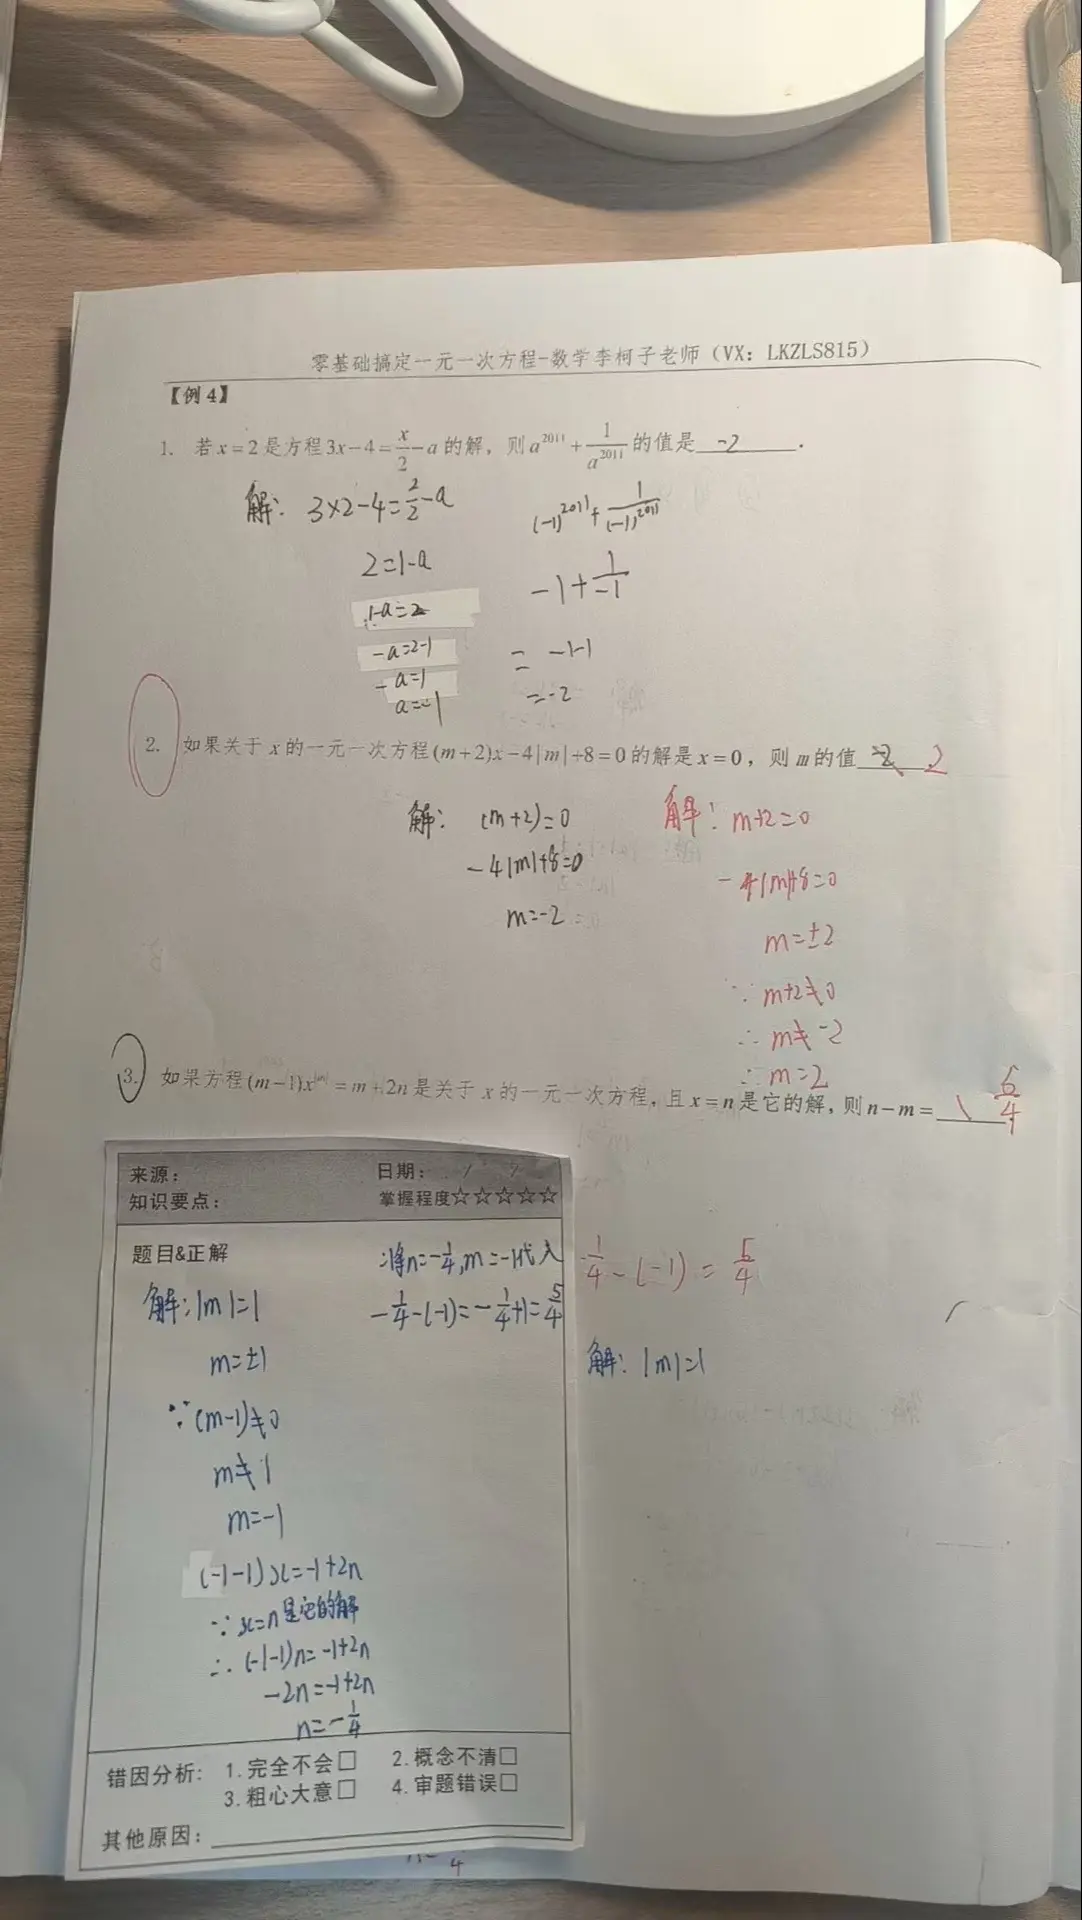 零基础搞定一元一次方程-数学李柯子老师（VX: LKZLS815）
【例4】
1. 若x=2是方程3x-4=x/2-a的解，则a^2011+1/a^2011的值是 -2 .
解: 3×2-4=2/2-a
2=1-a
1-a=2
-a=2-1
-a=1
a=-1
(-1)^2011+1/(-1)^2011
-1+1/-1
= -1-1
=-2
2. 如果关于x的一元一次方程(m+2)x-4|m|+8=0的解是x=0，则m的值 -2 2
解: (m+2)=0
-4|m|+8=0
m=-2
解: m+2=0
-4|m|+8=0
m=±2
∵ m+2≠0
∴ m≠-2
∴ m=2
3. 如果方程(m-1)x^|m|=m+2n是关于x的一元一次方程，且x=n是它的解，则n-m=
来源:
日期: / /
知识要点:
掌握程度☆☆☆☆☆
题目&正解
解: |m|=1
m=±1
∵(m-1)≠0
m≠1
m=-1
(-1-1)x=-1+2n
∵ x=n是它的解
∴ (-1-1)n=-1+2n
-2n=-1+2n
n=-1/4
将n=-1/4,m=-1代入
-1/4-(-1)=-1/4+1=5/4
1/4-(-1)=5/4
解: |m|=1
错因分析: 1.完全不会□ 2.概念不清□
3.粗心大意□ 4.审题错误□
其他原因: